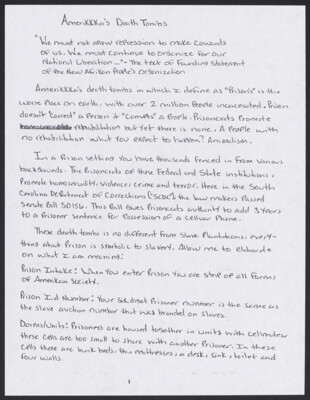 AmeriKKKa's Death Tombs
"We must not allow repression to make cowards
of us. We must continue to organize for our
National Liberation..." - The text of Founding Statement
of the New Afrikan People's Organization
AmeriKKKa's death tombs in which I define as "Prisons" is the
worse place on earth. With over 2 million People incarcerated. Prison
doesn't "correct" a Person it "corrupts" a People. Prisoncrats Promote
rehabilitation but yet there is none. A People with
no rehabilitation what you expect to happen? Animalism.
In a Prison setting you have thousands fenced in from various
backgrounds. The Prisoncrats of these Federal and State institutions,
Promote homosexuality, violence, crime and terror. Here in the South
Carolina Department of Corrections ("SCDC") the law makers Passed
Senate Bill
This Bill gives Prisoncrats authority to add 3 years
to a Prisoner sentence for Possession of a cellular Phone.
These death tombs is no different from Slave Plantations, every-
thing about Prison is symbolic to slavery. Allow me to elaborate
on what I am meaning:
Prison Intake: When you enter Prison you are strip of all Forms
of Amerikan Society.
Prison I.d Number: Your six digit Prisoner number is the same as
the slave auction number that was branded on slaves.
Dorms/Units: Prisoners are housed together in units with cellmates
these cells are too small to share with another Prisoner. In these
cells there are bunk beds, thin mattresses, a desk, sink, toilet and
four walls.
1